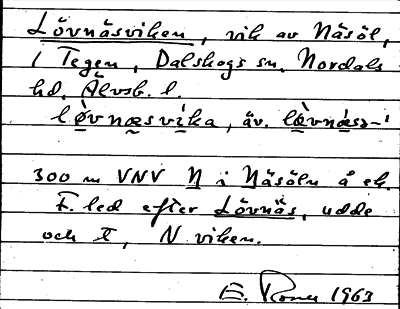 Lövnäsviken, vik av Näsöl,
i Tegen, Dalskogs sn, Nordals
hd, Älvsb. l.
lø̀vnæsvika, äv. lø̀vnæs-
300 m VNV N i Näsöln å ek.
F. led efter Lövnäs, udde
och t, N viken.
E. 1963